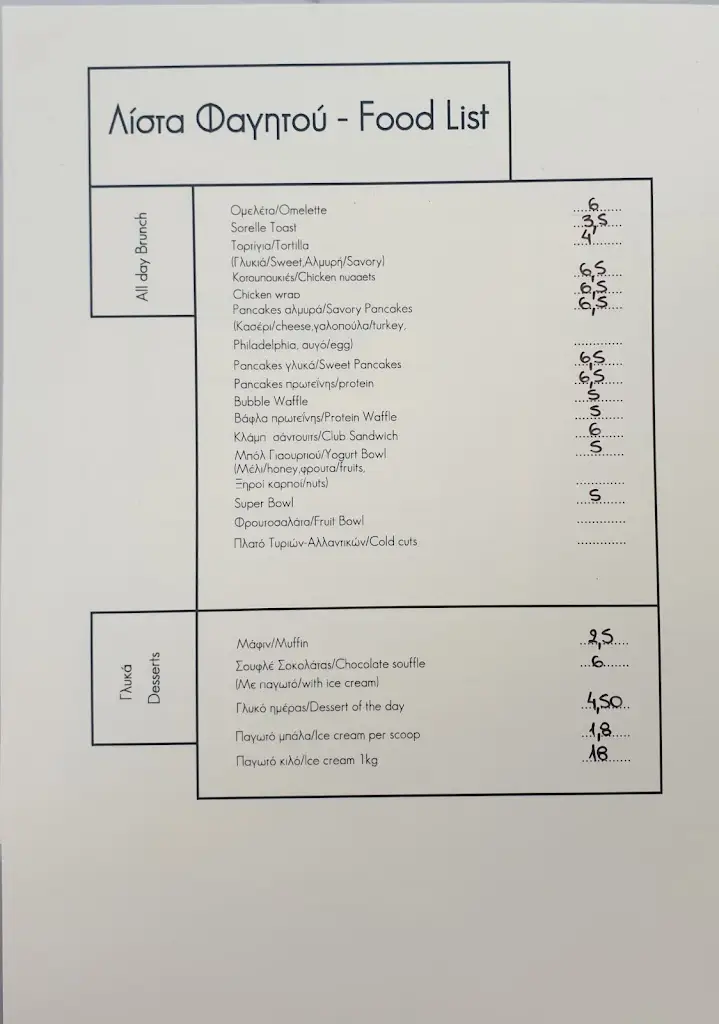 Λίστα Φαγητού - Food List
All day Brunch
Ομελέτα/Omelette 6
Sorelle Toast 3,5
Τορτίγια/Tortilla 4
(Γλυκιά/Sweet,Αλμυρή/Savory)
Κοτομπουκιές/Chicken nuggets 6,5
Chicken wrap 6,5
Pancakes αλμυρά/Savory Pancakes 6,5
(Κασέρι/cheese,γαλοπούλα/turkey,
Philadelphia, αυγό/egg)
Pancakes γλυκά/Sweet Pancakes 6,5
Pancakes πρωτεΐνης/protein 6,5
Bubble Waffle 5
Βάφλα πρωτεΐνης/Protein Waffle 5
Κλάμπ σάντουιτς/Club Sandwich 6
Μπόλ Γιαουρτιού/Yogurt Bowl 5
(Μέλι/honey,φρουτα/fruits,
Ξηροί καρποί/nuts)
Super Bowl 5
Φρουτοσαλάτα/Fruit Bowl
Πλατό Τυριών-Αλλαντικών/Cold cuts
Γλυκά
Desserts
Μάφιν/Muffin 2,5
Σουφλέ Σοκολάτας/Chocolate souffle 6
(Με παγωτό/with ice cream)
Γλυκό ημέρας/Dessert of the day 4,50
Παγωτό μπάλα/Ice cream per scoop 1,8
Παγωτό κιλό/Ice cream 1kg 18